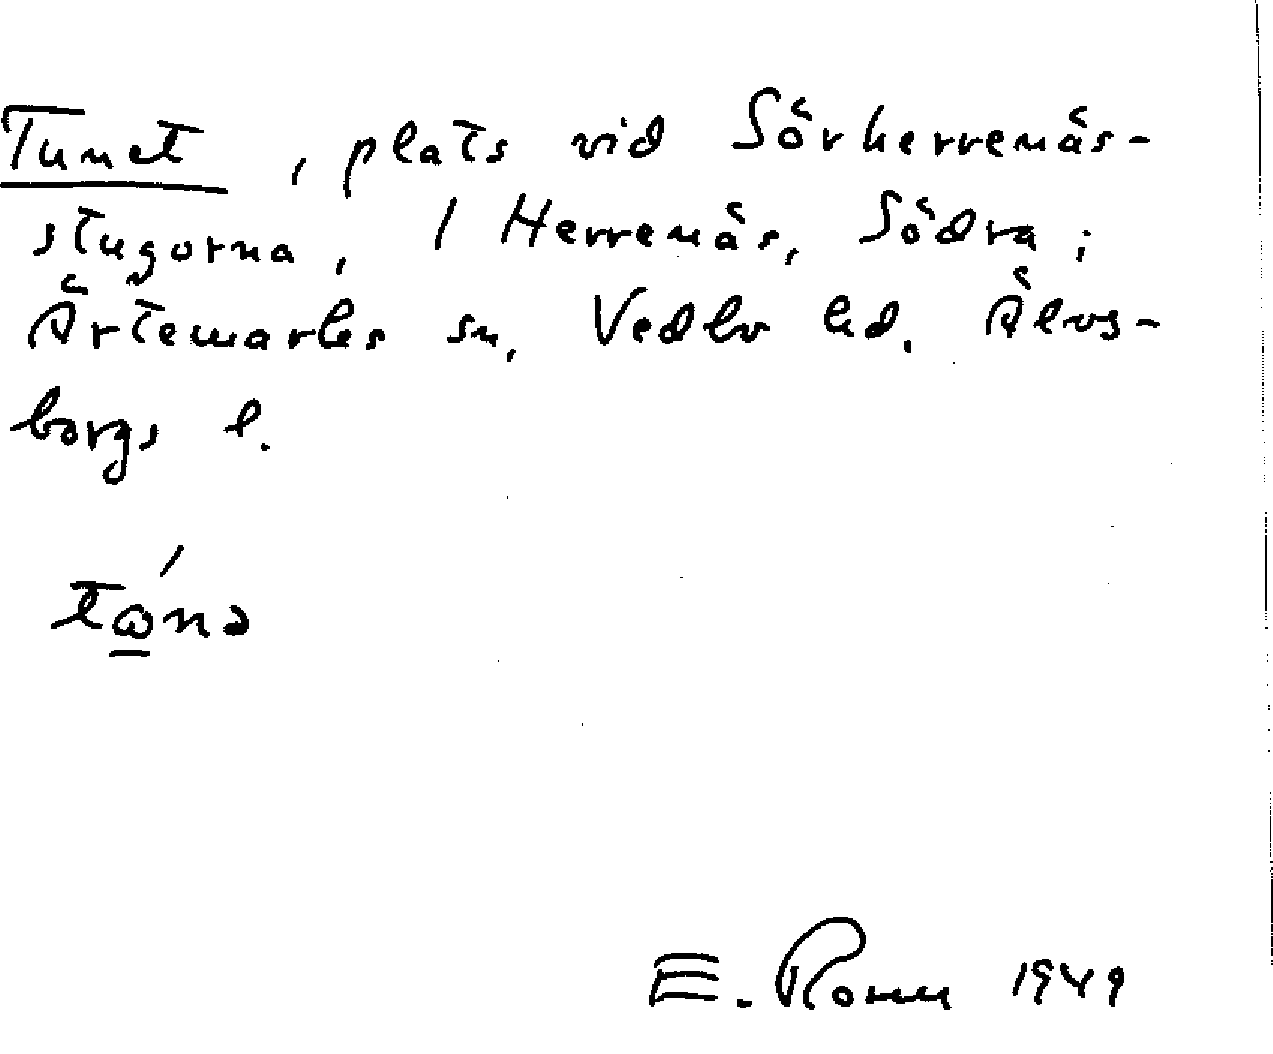 Tunet, plats vid Sörherrenäs-
stugorna, 1 Herrenäs, Södra;
Ärtemarks sn, Vedbo hd. Älvs-
borgs l.
tώnə
E. Rosell 1949